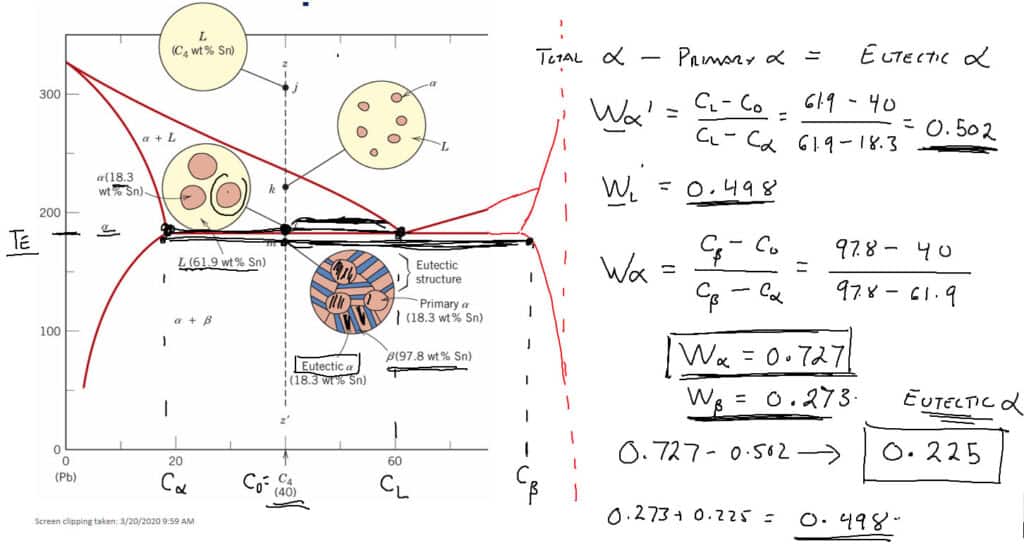 L
(C4 wt% Sn)
z
j
300
α
α + L
L
α(18.3
wt% Sn)
k
200
TE
g
m
L (61.9 wt% Sn)
Eutectic
structure
Primary α
(18.3 wt% Sn)
α + β
100
β(97.8 wt% Sn)
Eutectic α
(18.3 wt% Sn)
z'
0
0
20
60
(Pb)
Cα
C0= C4
(40)
CL
Cβ
Screen clipping taken: 3/20/2020 9:59 AM
TOTAL α – PRIMARY α = EUTECTIC α
Wα' = CL - C0 / CL - Cα = 61.9 - 40 / 61.9 - 18.3 = 0.502
WL' = 0.498
Wα = Cβ - C0 / Cβ - Cα = 97.8 - 40 / 97.8 - 61.9
Wα = 0.727
Wβ = 0.273.
EUTECTIC α
0.727 - 0.502 → 0.225
0.273 + 0.225 = 0.498.